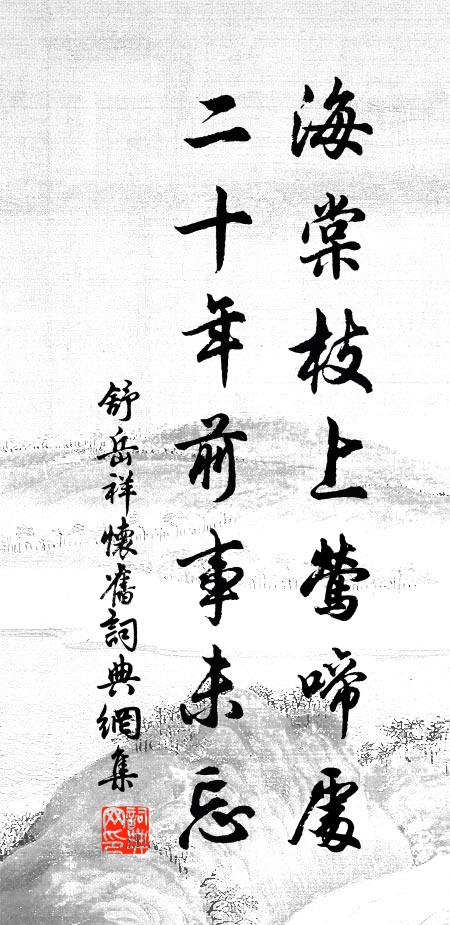 海棠枝上鶯啼處
二十年前事未忘
舒岳祥懷舊詞典網集